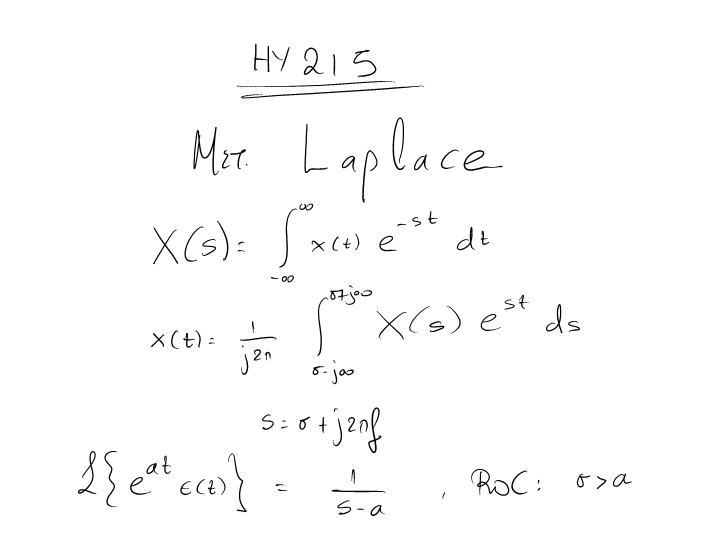 HY 215
Μετ. Laplace
X(s) = ∫_{-∞}^{∞} x(t) e^{-st} dt
x(t) = \frac{1}{j2π} ∫_{σ-j∞}^{σ+j∞} X(s) e^{st} ds
s = σ + j2πf
ℒ{e^{at} ε(t)} = \frac{1}{s-a} , RoC: σ>a